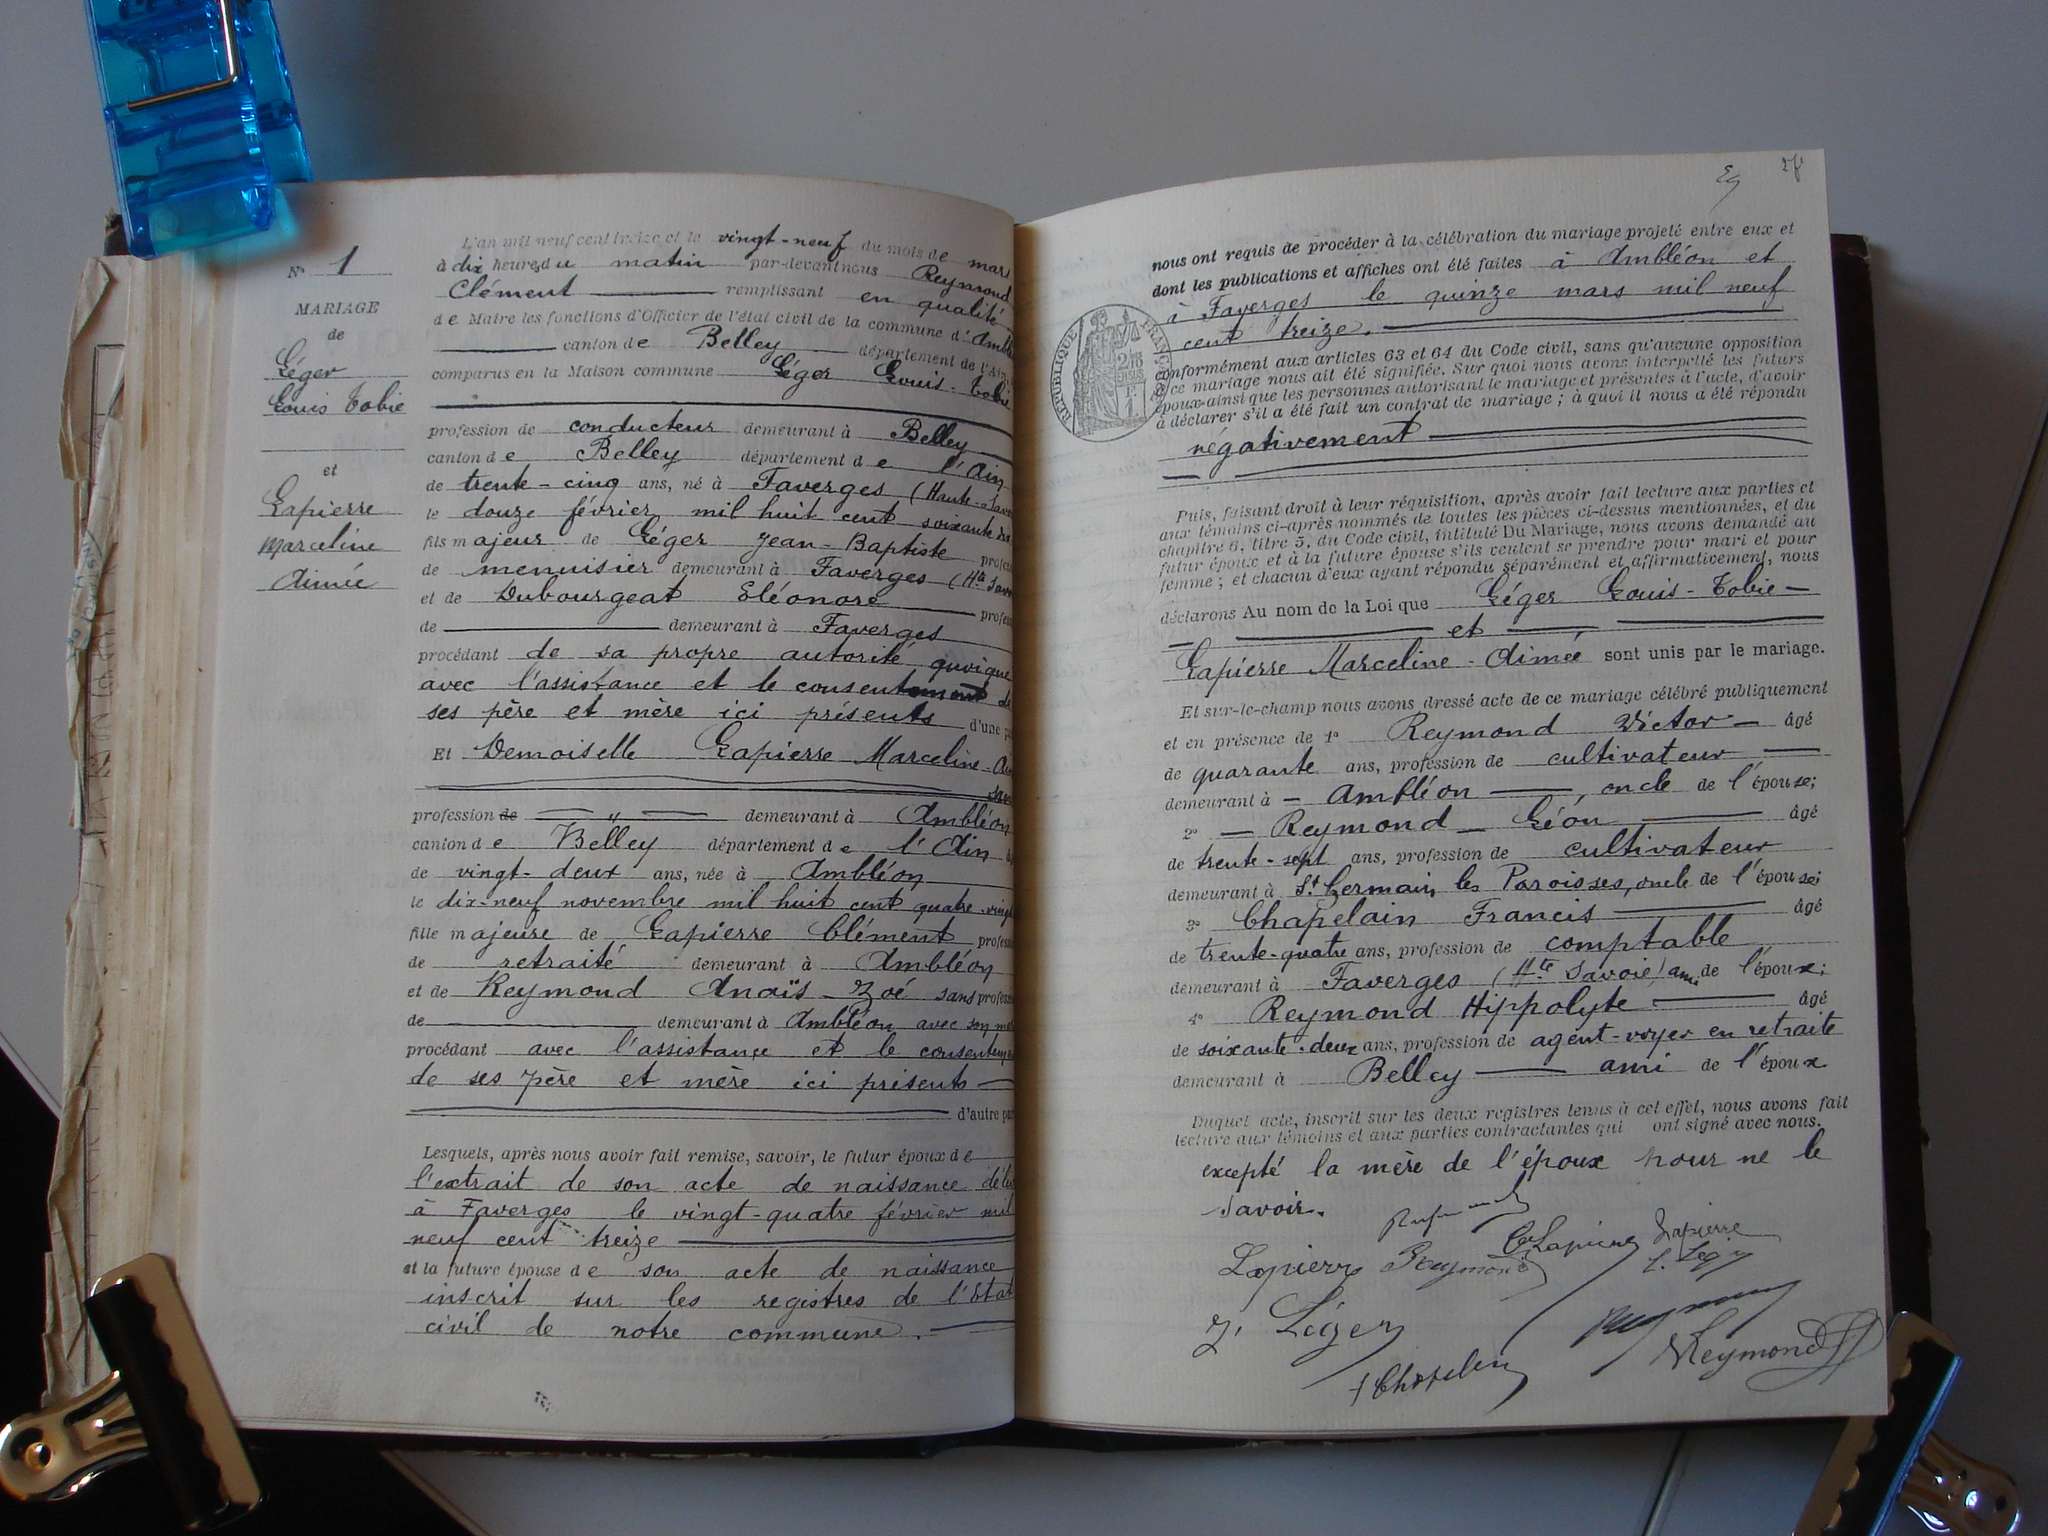 N° 1
MARIAGE
de
Léger
Louis Tobie
et
Lapierre
Marceline
Aimée
L'an mil neuf cent treize et le vingt-neuf du mois de mars
à dix heures du matin par-devant nous Reymond
Clément remplissant en qualité
de Maire les fonctions d'Officier de l'état civil de la commune d'Ambl
canton de Belley département de l'Ain
comparus en la Maison commune Léger Louis-Tobie
profession de conducteur demeurant à Belley
canton de Belley département de l'Ain
de trente-cinq ans, né à Faverges (Haute-Savo
le douze février mil huit cent soixante dix
fils majeur de Léger Jean-Baptiste profes
de menuisier demeurant à Faverges (Hte Savo
et de Dubourgeat Eléonore profes
de demeurant à Faverges
procédant de sa propre autorité quoique
avec l'assistance et le consentement de
ses père et mère ici présents d'une pa
Et Demoiselle Lapierre Marceline-Ai
sans
profession de " demeurant à Ambléon
canton de Belley département de l'Ain
de vingt-deux ans, née à Ambléon
le dix-neuf novembre mil huit cent quatre-vingt
fille majeure de Lapierre Clément profess
de retraité demeurant à Ambléon
et de Reymond Anaïs-Zoé sans profess
de demeurant à Ambléon avec son ma
procédant avec l'assistance et le consenteme
de ses père et mère ici présents
d'autre par
Lesquels, après nous avoir fait remise, savoir, le futur époux de
l'extrait de son acte de naissance déliv
à Faverges le vingt-quatre février mil
neuf cent treize
et la future épouse de son acte de naissance
inscrit sur les registres de l'Etat
civil de notre commune.
nous ont requis de procéder à la célébration du mariage projeté entre eux et
dont les publications et affiches ont été faites à Ambléon et
à Faverges le quinze mars mil neuf
cent treize.
RÉPUBLIQUE FRANÇAISE
conformément aux articles 63 et 64 du Code civil, sans qu'aucune opposition
à ce mariage nous ait été signifiée. Sur quoi nous avons interpellé les futurs
époux ainsi que les personnes autorisant le mariage et présentes à l'acte, d'avoir
à déclarer s'il a été fait un contrat de mariage ; à quoi il nous a été répondu
négativement
Puis, faisant droit à leur réquisition, après avoir fait lecture aux parties et
aux témoins ci-après nommés de toutes les pièces ci-dessus mentionnées, et du
chapitre 6, titre 5, du Code civil, intitulé Du Mariage, nous avons demandé au
futur époux et à la future épouse s'ils veulent se prendre pour mari et pour
femme ; et chacun d'eux ayant répondu séparément et affirmativement, nous
déclarons Au nom de la Loi que Léger Louis-Tobie
et
Lapierre Marceline-Aimée sont unis par le mariage.
Et sur-le-champ nous avons dressé acte de ce mariage célébré publiquement
et en présence de 1° Reymond Victor âgé
de quarante ans, profession de cultivateur
demeurant à Ambléon, oncle de l'épouse;
2° Reymond Léon âgé
de trente-sept ans, profession de cultivateur
demeurant à St Germain les Paroisses, oncle de l'épouse;
3° Chapelain Francis âgé
de trente-quatre ans, profession de comptable
demeurant à Faverges (Hte Savoie) ami de l'époux;
4° Reymond Hippolyte âgé
de soixante-deux ans, profession de agent-voyer en retraite
demeurant à Belley ami de l'époux
Duquel acte, inscrit sur les deux registres tenus à cet effet, nous avons fait
lecture aux témoins et aux parties contractantes qui ont signé avec nous.
excepté la mère de l'époux pour ne le
savoir.
Lapierre Reymond C. Lapierre Lapierre
L. Léger
J. Léger
Reymond
F Chapelain